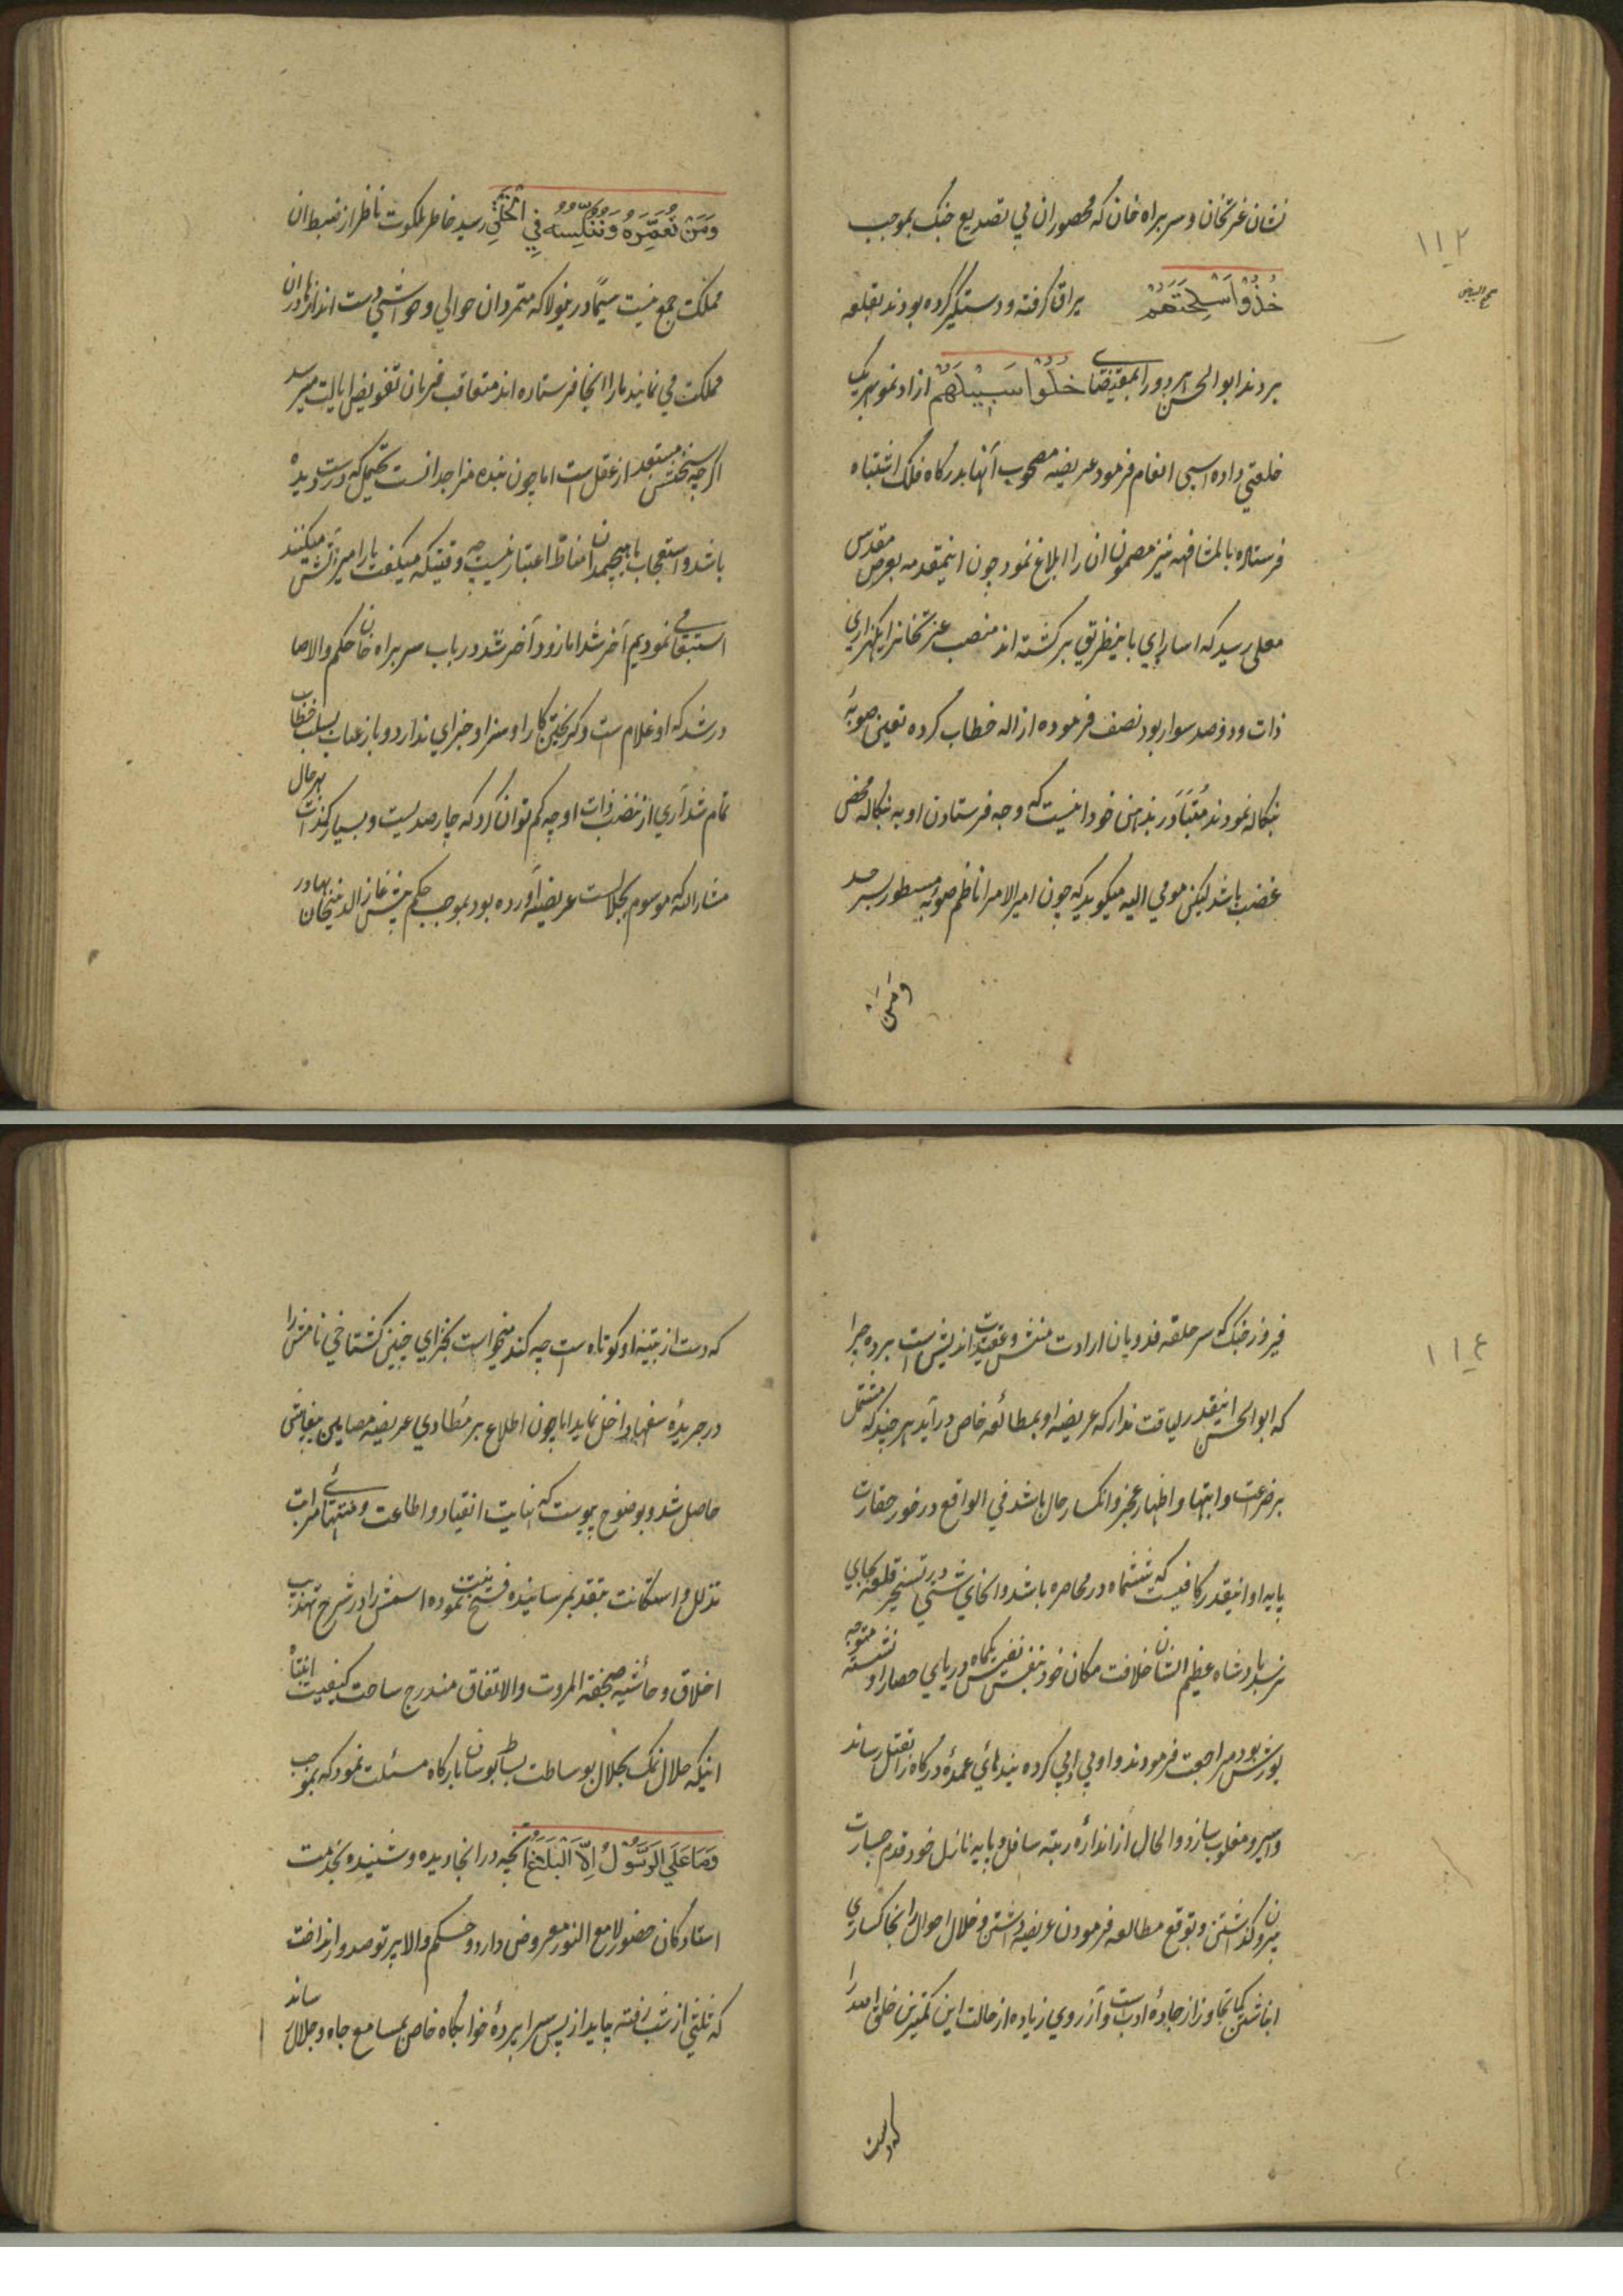 ۱۱۲
نشان غرتخان و سربراه خان که محصوران بی تصدیع جنک بموجب
خُذُوا اَسْلِحَتَهُم یراق کرفته و دستکیر کرده بودند بقلعه
بردند ابوالحسن هر دو را بمقتضای خَلُّوا سَبِیْلَهُم ازاد نمود هر یک
خلعتی داده اسبی انعام فرمود عریضه مصحوب آنها بدرکاه فلک اشتباه
فرستاده بالمشافهه نیز مضمون ان را ابلاغ نمود چون اینمقدمه بعرض مقدس
معلی رسید که اسارای باینطریق برکشته اند منصب عزتخانرا یکهزاری
ذات و دوصد سوار بود نصف فرموده ازاله خطاب کرده تعین صوبهٔ
بنکاله نمودند مُتَبَادر بذهن خود اینست که وجه فرستادن او به بنکاله محض
غضب باشد لیکن مومی الیه میکوید که چون امیرالامرا ناظم صوبه مسطور بسرحد
وَمَنْ
وَمَنْ نُعَمِّرْهُ وَنُنَكِّسْهُ فِی الْخَلْقِ رسید خاطر ملکوت ناظر از ضبط ان
مملکت جمع نیست سیَّما درینولا که متمردان حوالی و حواشی دست اندازیها دران
مملکت می نمایند مارا اینجا فرستاده اند متعاقب فرمان تفویض ایالت میرسد
اکرچه سخنش مستبعد از عقل است اما چون بنده مزاجدانست تحمل که درست دیده
باشد و استعجاب باهیچمدان مناط اعتبار نیست چه وقتیکه میکفت مارا میر اتش میکنند
استبعاد می نمودیم آخر شد اما زود آخر شد در باب سربراه خان حکم والا صا
در شد که او غلام ست و کریختن کار او سزا و جزای ندارد و باز عتاب بسلب خطاب
تمام شد آری از منصب ذات او چه کم توان کرد که چارصد بیست و بسیار کند است بهرحال
مشارالیه که موسوم بجلالست عریضه آورده بود بموجب حکم پیش غازالدینخان بهادر
۱۱٤
فیروز جنک که سر حلقه فدویان ارادت منش و عقیدت اندیش است برده چرا
که ابوالحسن اینقدر لیاقت ندارد که عریضه او بمطالعه خاص درآید هر چند که مشتمل
بر ضراعت و ابتهال و اظهار عجز و انکسار حال باشد فی الواقع در خور حقارت
پایه او اینقدر کافیست که ششماه در محاصره باشد و انحای شتی در تسخیر قلعه بجای
نرسد پادشاه عظیم الشان خلافت مکان خود بنفس نفیس یکماه در پای حصار او نشسته متوجه
یورش بود مراجعت فرمودند و او پی ادبی کرده بندهای عمدهٔ درکاه را بقتل رساند
و اسیر و مغلوب سازد و الحال از اندازهٔ رتبه سافل و پایه نازل خود قدم جسارت
بیرون کذاشتن و بتوقع مطالعه فرمودن عریضه داشتن و خلال احوال را بخاکساری
انباشتن کمال تجاوز از جادهٔ ادبست و آرزوی زیاده از حالت این کمترین خلق اسد را
که دست
که دست از تنبیه او کوتاه است چه کند میخواست بجزای چنین کستاخی نامش را
در جریدهٔ سفها داخل نماید اما چون اطلاع بر مطاوی عریضه مصایلین بغایتی
حاصل شد و بوضوح پیوست که نهایت انقیاد و اطاعت و منتهای مراتب
تذلل و استکانت بتقدیم رسانیده فسخ نیت نموده اسمش را در شرح تهذیب
اخلاق و حاشیه صحیفه المروت والاتفاق مندرج ساخت کیفیت انتباه
اینکه حلال نمک بجلال بوساطت بساط بوسان بارکاه مسئلت نمود که بموجب
وَمَا عَلَى الرَّسُوْلِ اِلَّا الْبَلَاغُ آنچه در انجا دیده و شنیده بخدمت
استادکان حضور لامع النور معروض دارد و حکم والا پرتو صدور انداخت
که ثلثی از شب رفته بیاید از پس سراپردهٔ خوابکاه خاص بمسامع جاه و جلال رساند